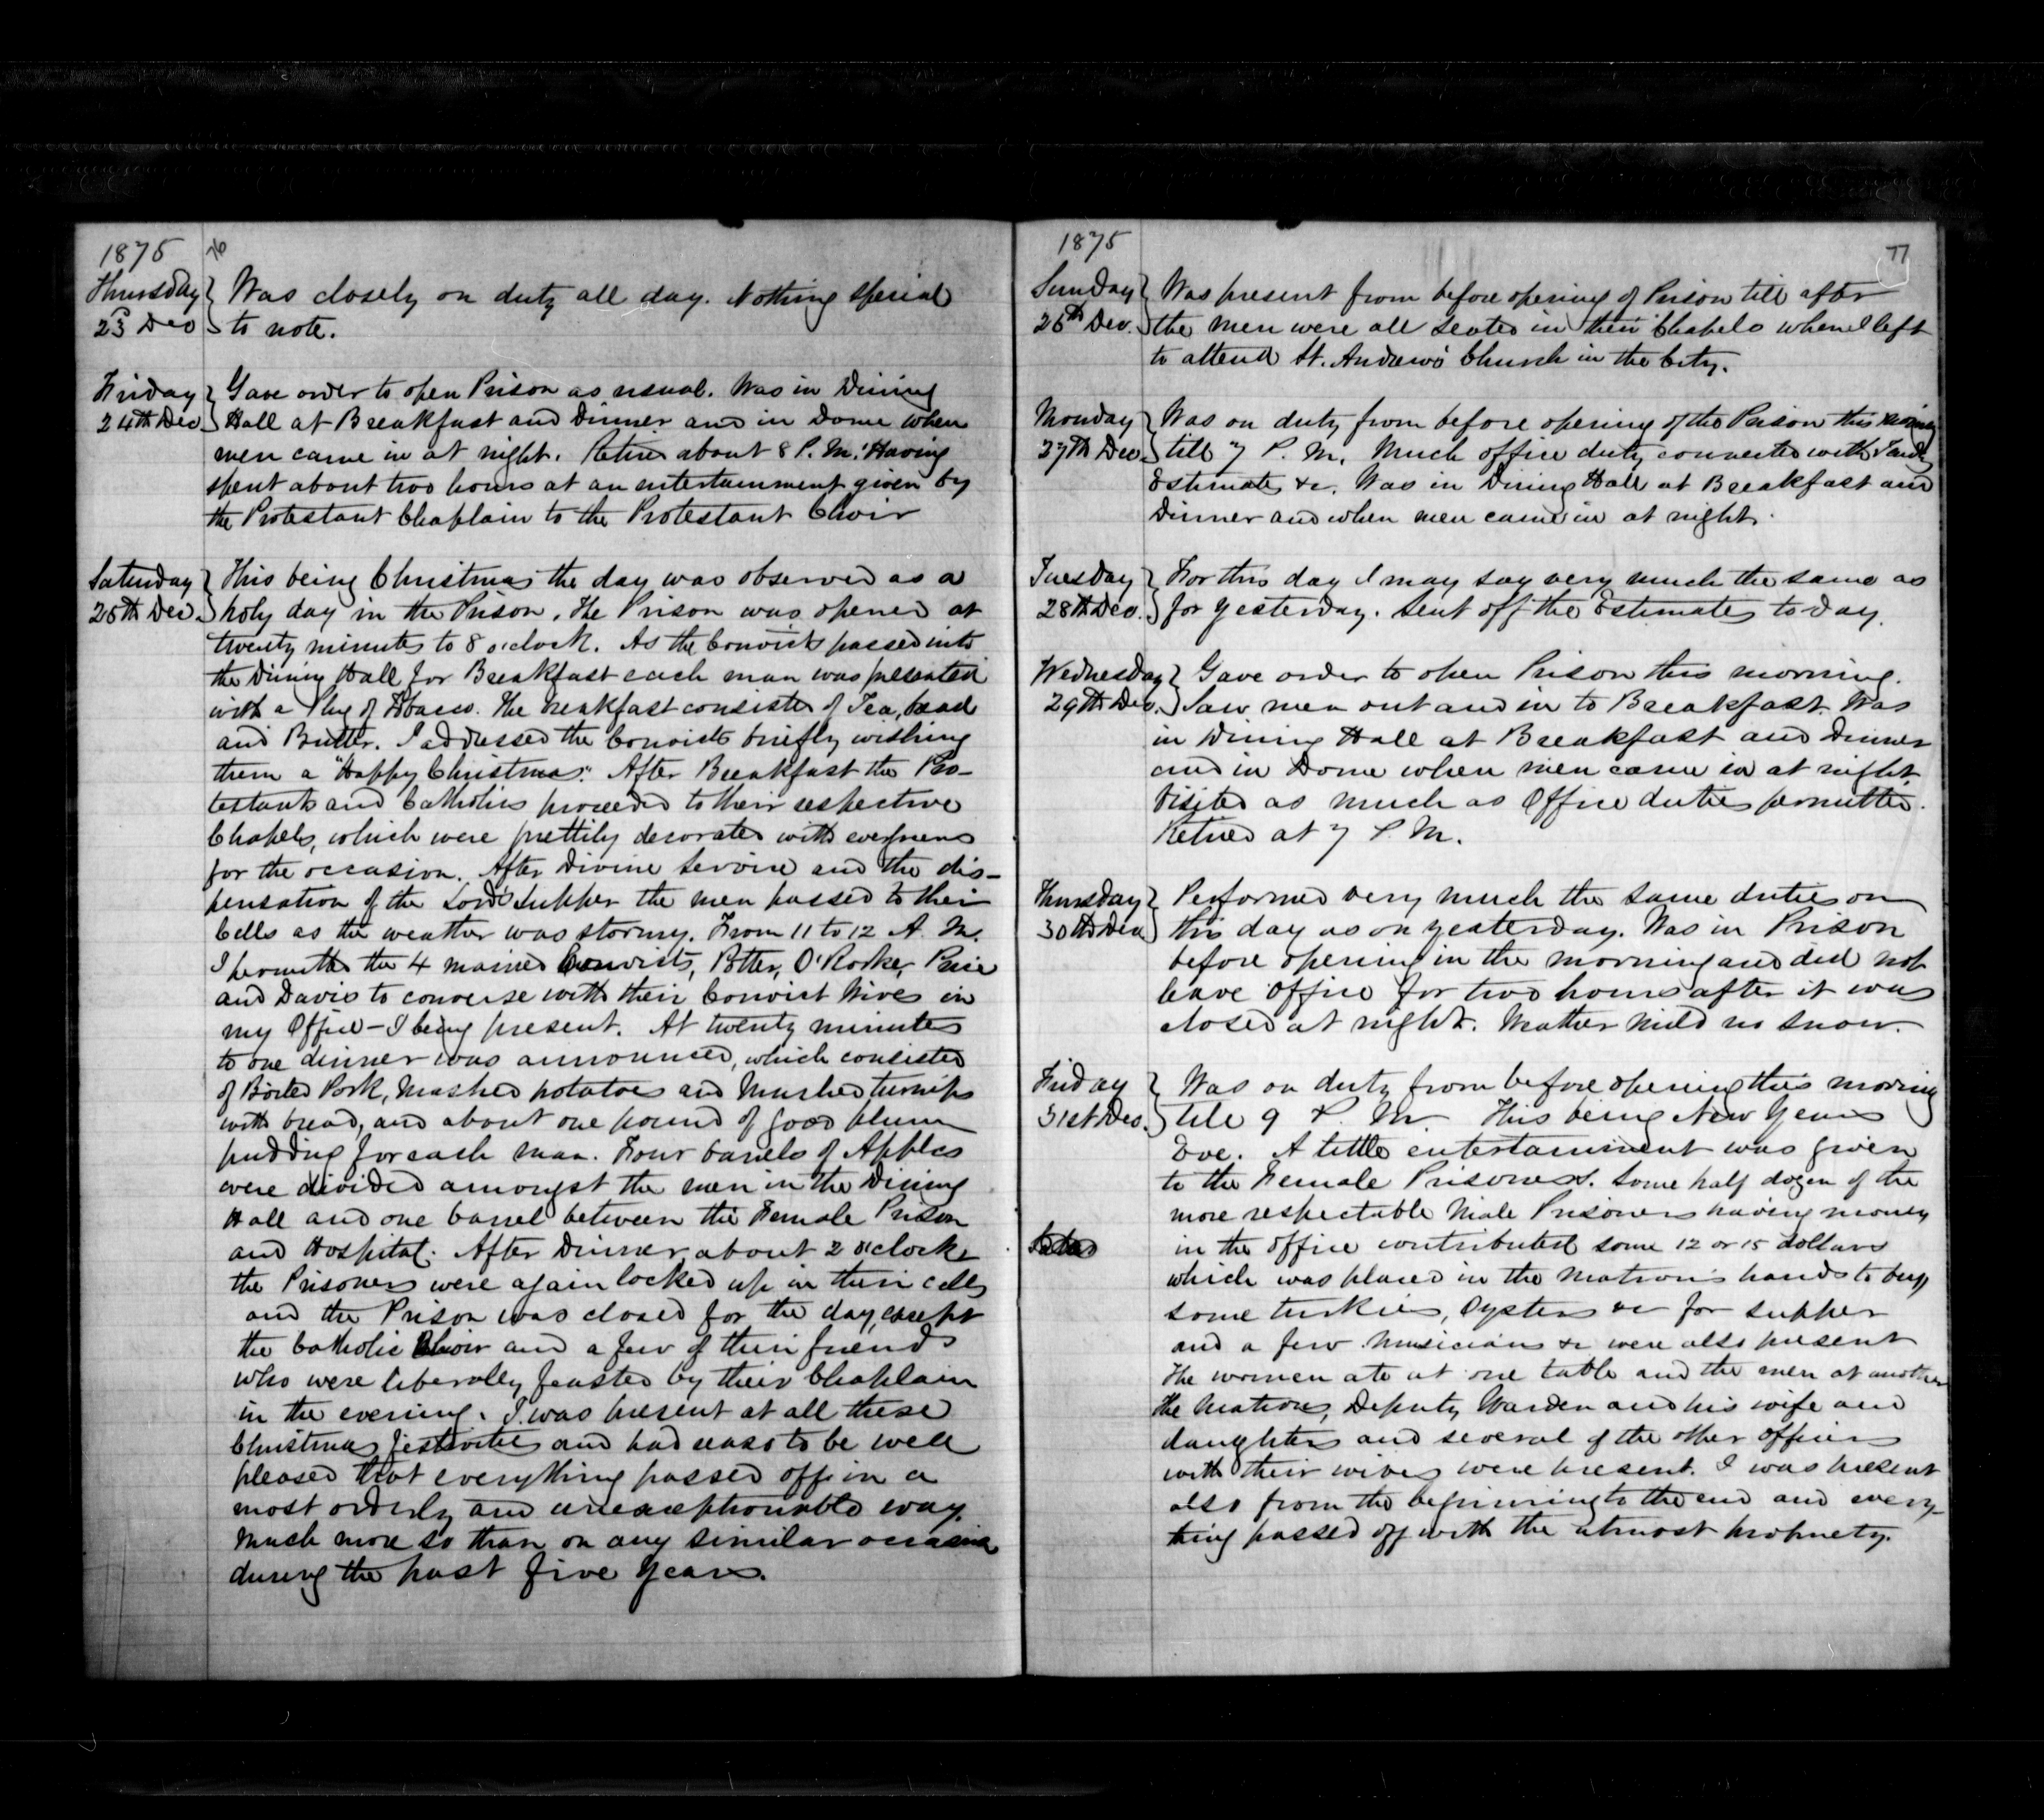 1875 76
Thursday Was closely on duty all day. Nothing special
23 Dec to note.
Friday Gave order to open Prison as usual. Was in Dining
24th Dec Hall at Breakfast and Dinner and in Dome when
men came in at night. Retired about 8 P.M. Having
spent about two hours at an entertainment given by
the Protestant Chaplain to the Protestant Choir
Saturday This being Christmas the day was observed as a
25th Dec. holy day in the Prison. The Prison was opened at
twenty minutes to 8 o'clock. As the Convicts passed into
the Dining Hall for Breakfast each man was presented
with a Plug of Tobacco. The Breakfast consisted of Tea, bread
and Butter. I addressed the Convicts briefly wishing
them a "Happy Christmas." After Breakfast the Pro-
testants and Catholics proceeded to their respective
Chapels, which were prettily decorated with evergreens
for the occasion. After Divine Service and the dis-
pensation of the Lord's Supper the men passed to their
Cells as the weather was stormy. From 11 to 12 A.M.
I permitted the 4 married Convicts, Potter, O'Rorke, Price
and Davis to converse with their Convict Wives in
my Office - I being present. At twenty minutes
to one dinner was announced, which consisted
of Boiled Pork, Mashed potatoes and Mashed turnips
with bread, and about one pound of good plum
pudding for each man. Four barrels of Apples
were divided amongst the men in the Dining
Hall and one barrel between the Female Prison
and Hospital. After Dinner, about 2 o'clock
the Prisoners were again locked up in their cells
and the Prison was closed for the day, except
the Catholic Choir and a few of their friends
who were liberally feasted by their Chaplain
in the evening. I was present at all these
Christmas festivities and had reason to be well
pleased that everything passed off in a
most orderly and unexceptionable way.
Much more so than on any similar occasion
during the past five years.
1875 77
Sunday Was present from before opening of Prison till after
26th Dec. the men were all seated in their Chapels when I left
to attend St. Andrew's Church in the City.
Monday Was on duty from before opening of the Prison this morning
27th Dec. till 7 P.M. Much office duty connected with
Estimates &c. Was in Dining Hall at Breakfast and
Dinner and when men came in at night.
Tuesday For this day I may say very much the same as
28th Dec. for yesterday. Sent off the Estimates to day.
Wednesday Gave order to open Prison this morning.
29th Dec. Saw men out and in to Breakfast. Was
in Dining Hall at Breakfast and Dinner
and in Dome when men came in at night.
Visited as much as Office duties permitted.
Retired at 7 P.M.
Thursday Performed very much the same duties on
30th Dec this day as on yesterday. Was in Prison
before opening in the morning and did not
leave office for two hours after it was
closed at night. Weather mild no snow.
Friday Was on duty from before opening this morning
31st Dec. till 9 P.M. This being New Years
Eve. A little entertainment was given
to the Female Prisoners. Some half dozen of the
more respectable Male Prisoners having money
in the office contributed some 12 or 15 dollars
which was placed in the Matron's hands to buy
some turkies, Oysters &c for supper
and a few Musicians &c were also present
The women ate at one table and the men at another
The Matron, Deputy Warden and his wife and
daughters and several of the other officers
with their wives were present. I was present
also from the beginning to the end and every-
thing passed off with the utmost propriety.